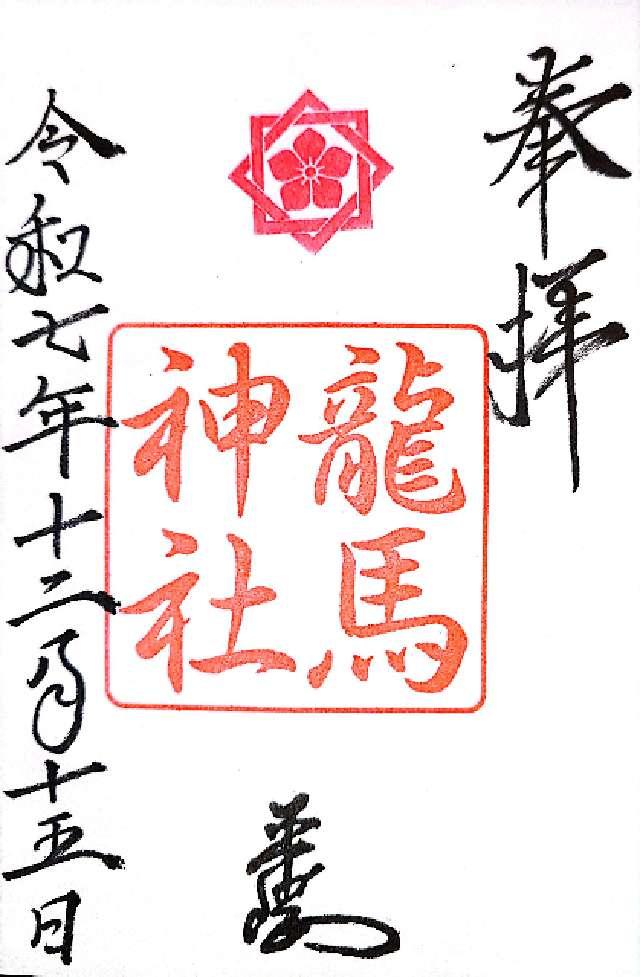 奉拝
龍馬
神社
令和七年十二月十五日